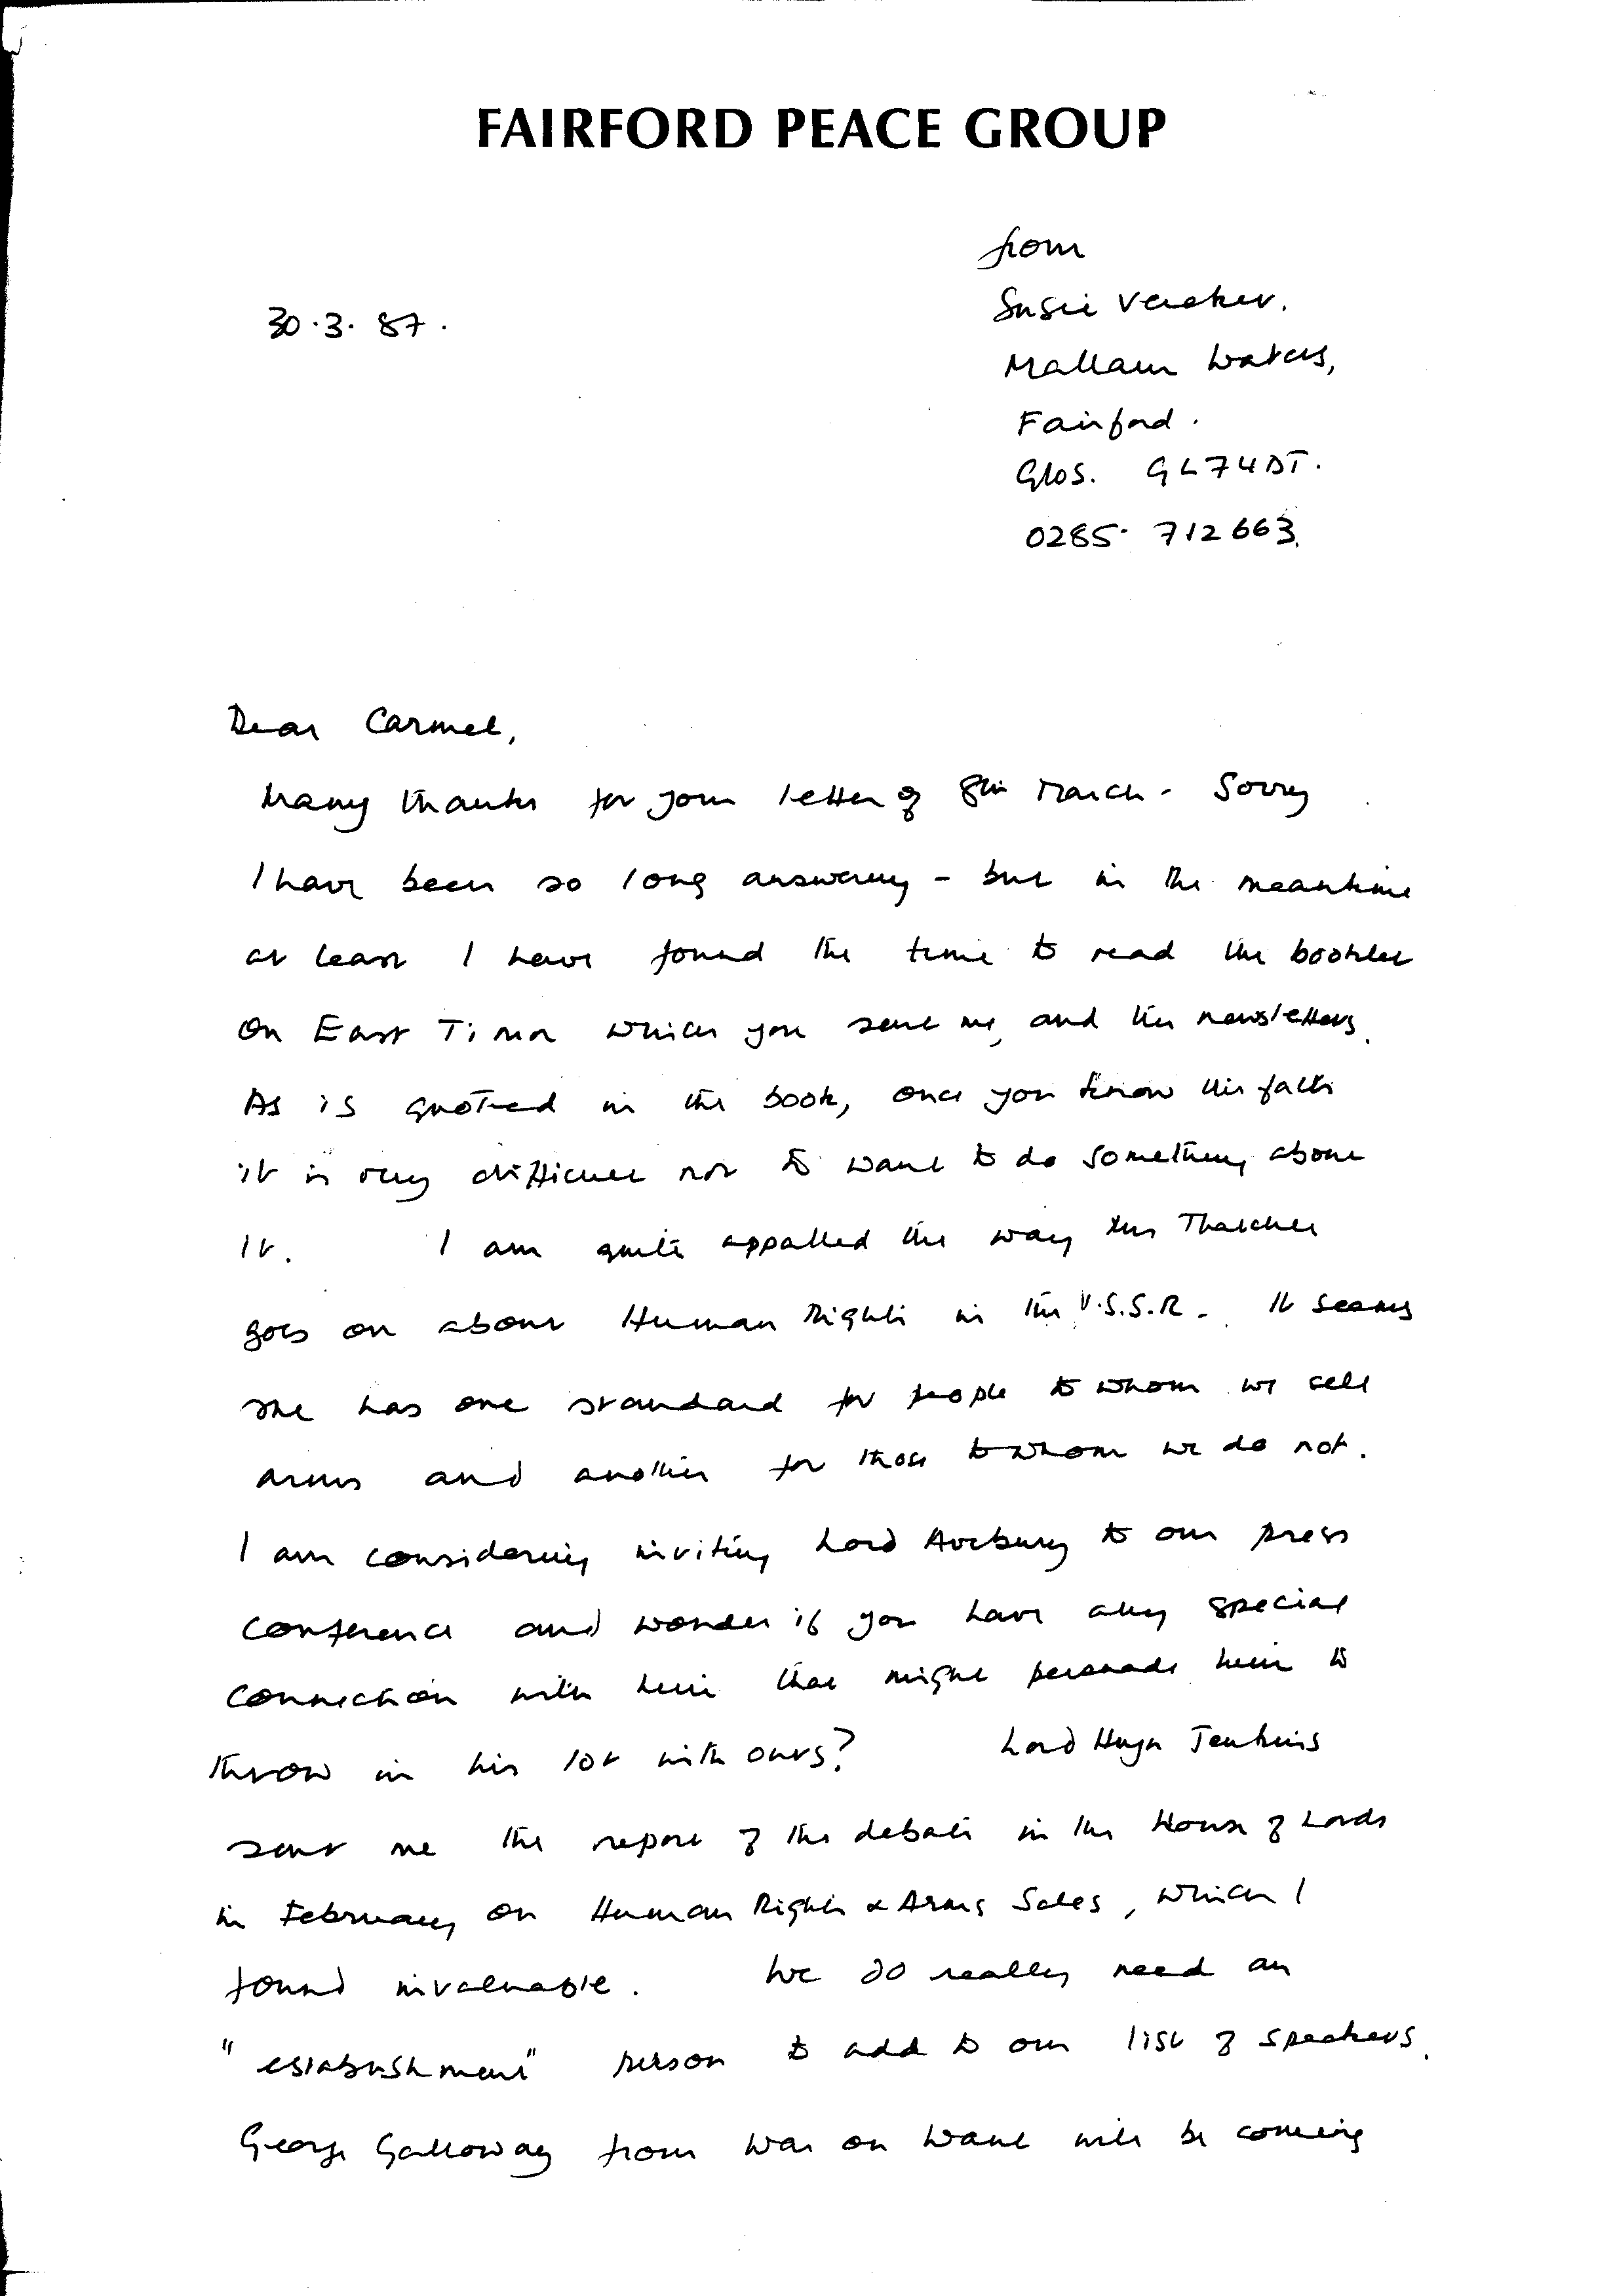 FAIRFORD PEACE GROUP
from
30.3.87.
Susie Vereker.
Mallam Waters,
Fairford.
Glos. GL7 4DT.
0285. 712663.
Dear Carmel,
Many thanks for your letter of 8th March. Sorry
I have been so long answering - but in the meantime
at least I have found the time to read the booklet
on East Timor which you sent me, and the newsletters.
As is quoted in the book, once you know the facts
it is very difficult not to want to do something about
it. I am quite appalled the way Mrs Thatcher
goes on about Human Rights in the U.S.S.R. It seems
she has one standard for people to whom we sell
arms and another for those to whom we do not.
I am considering inviting Lord Avebury to our press
conference and wonder if you have any special
connection with him that might persuade him to
throw in his lot with ours? Lord Hugh Jenkins
sent me the report of the debate in the House of Lords
in February on Human Rights & Arms Sales, which I
found invaluable. We do really need an
"establishment" person to add to our list of speakers.
George Galloway from War on Want will be coming